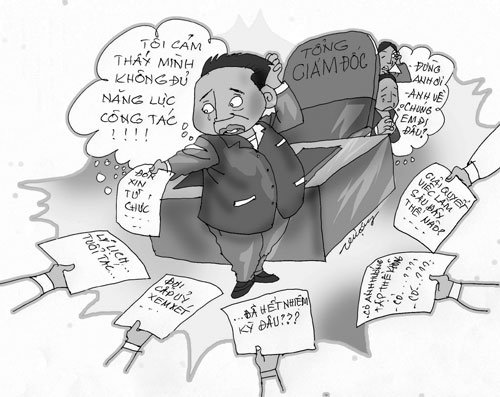 TÔI CẢM
THẤY MÌNH
KHÔNG ĐỦ
NĂNG LỰC
CÔNG TÁC
! ! ! !
TỔNG
GIÁM ĐỐC
- ĐỪNG
ANH ƠI!
- ANH VỀ
CHÚNG
EM ĐI
ĐÂU?
ĐƠN
XIN
TỪ
CHỨC
GIẢI QUYẾT
VIỆC LÀM
SAU ĐÂY
THẾ NÀO?
LÝ LỊCH
TUỔI TÁC...
ĐỢI
CẤP UỶ
XEM XÉT
...ĐÃ HẾT NHIỆM
KỲ ĐÂU???
- CÓ ẢNH HƯỞNG
TẬP THỂ KHÔNG
- CÓ...???
- CÓ...???